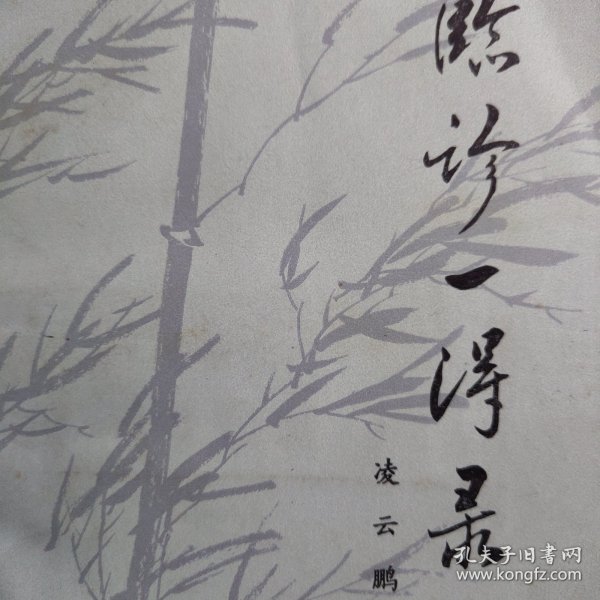 臨诊一得录
凌云鹏
孔夫子旧書网
www.kongfz.com